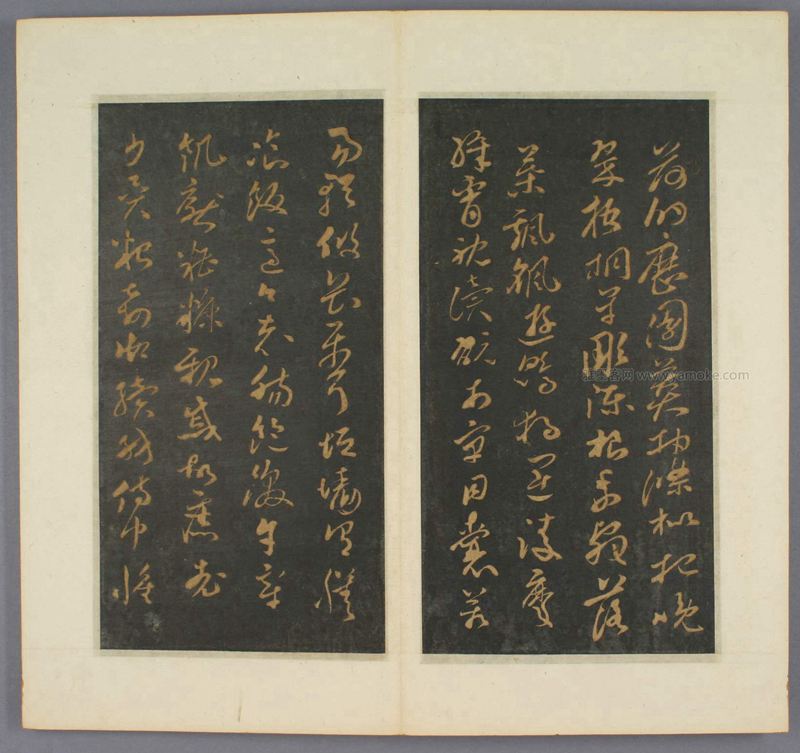 荷的歷園莽抽條枇杷晚
翠梧桐早彫陳根委翳落
葉飄颻遊鵾獨運淩摩
絳霄耽讀翫市寓目囊箱
易輶攸畏屬耳垣墻具膳
飡飯適口充腸飽飫烹宰
飢厭糟糠親戚故舊老
少異粮妾御績紡侍巾帷
www.yamoke.com